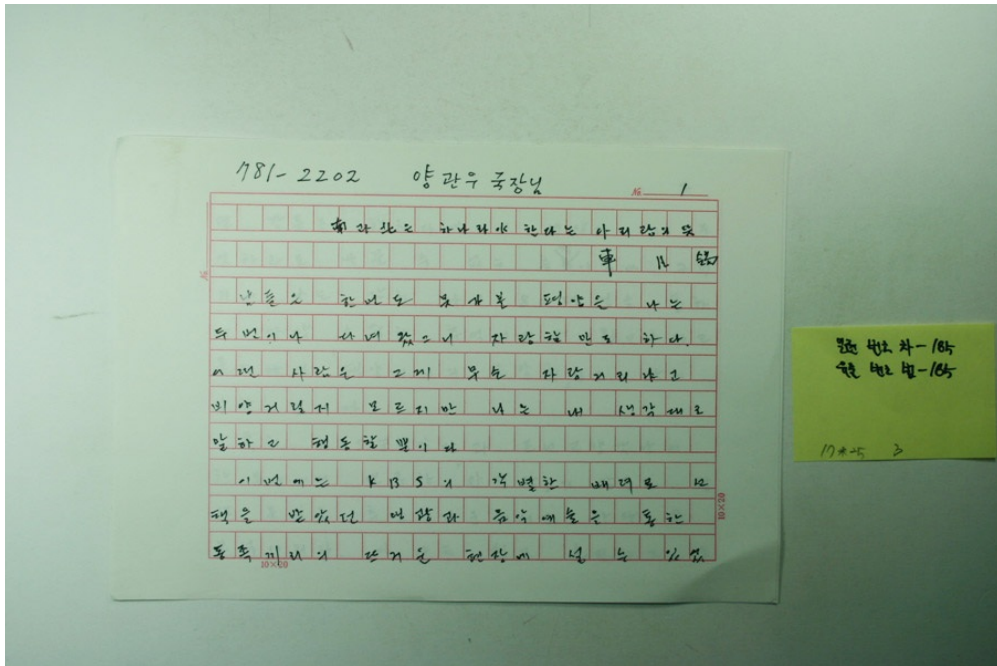 781-2202 양관우 국장님
No. 1
南과 北은 하나라야 한다는 아리랑의 뜻
車 凡 錫
남들은 한번도 못 가본 평양을 나는
두 번이나 다녀왔으니 자랑할 만도 하다.
어떤 사람은 그게 무슨 자랑거리냐고
비양거릴지 모르지만 나는 내 생각대로
말하고 행동할 뿐이다
이번에는 KBS의 각별한 배려로 초
택을 받았던 영광과 음악예술을 통한
동족끼리의 뜨거운 현장에 설 수 있었
10×20
10×20
번호 차-165
번호 -165
17*25 3